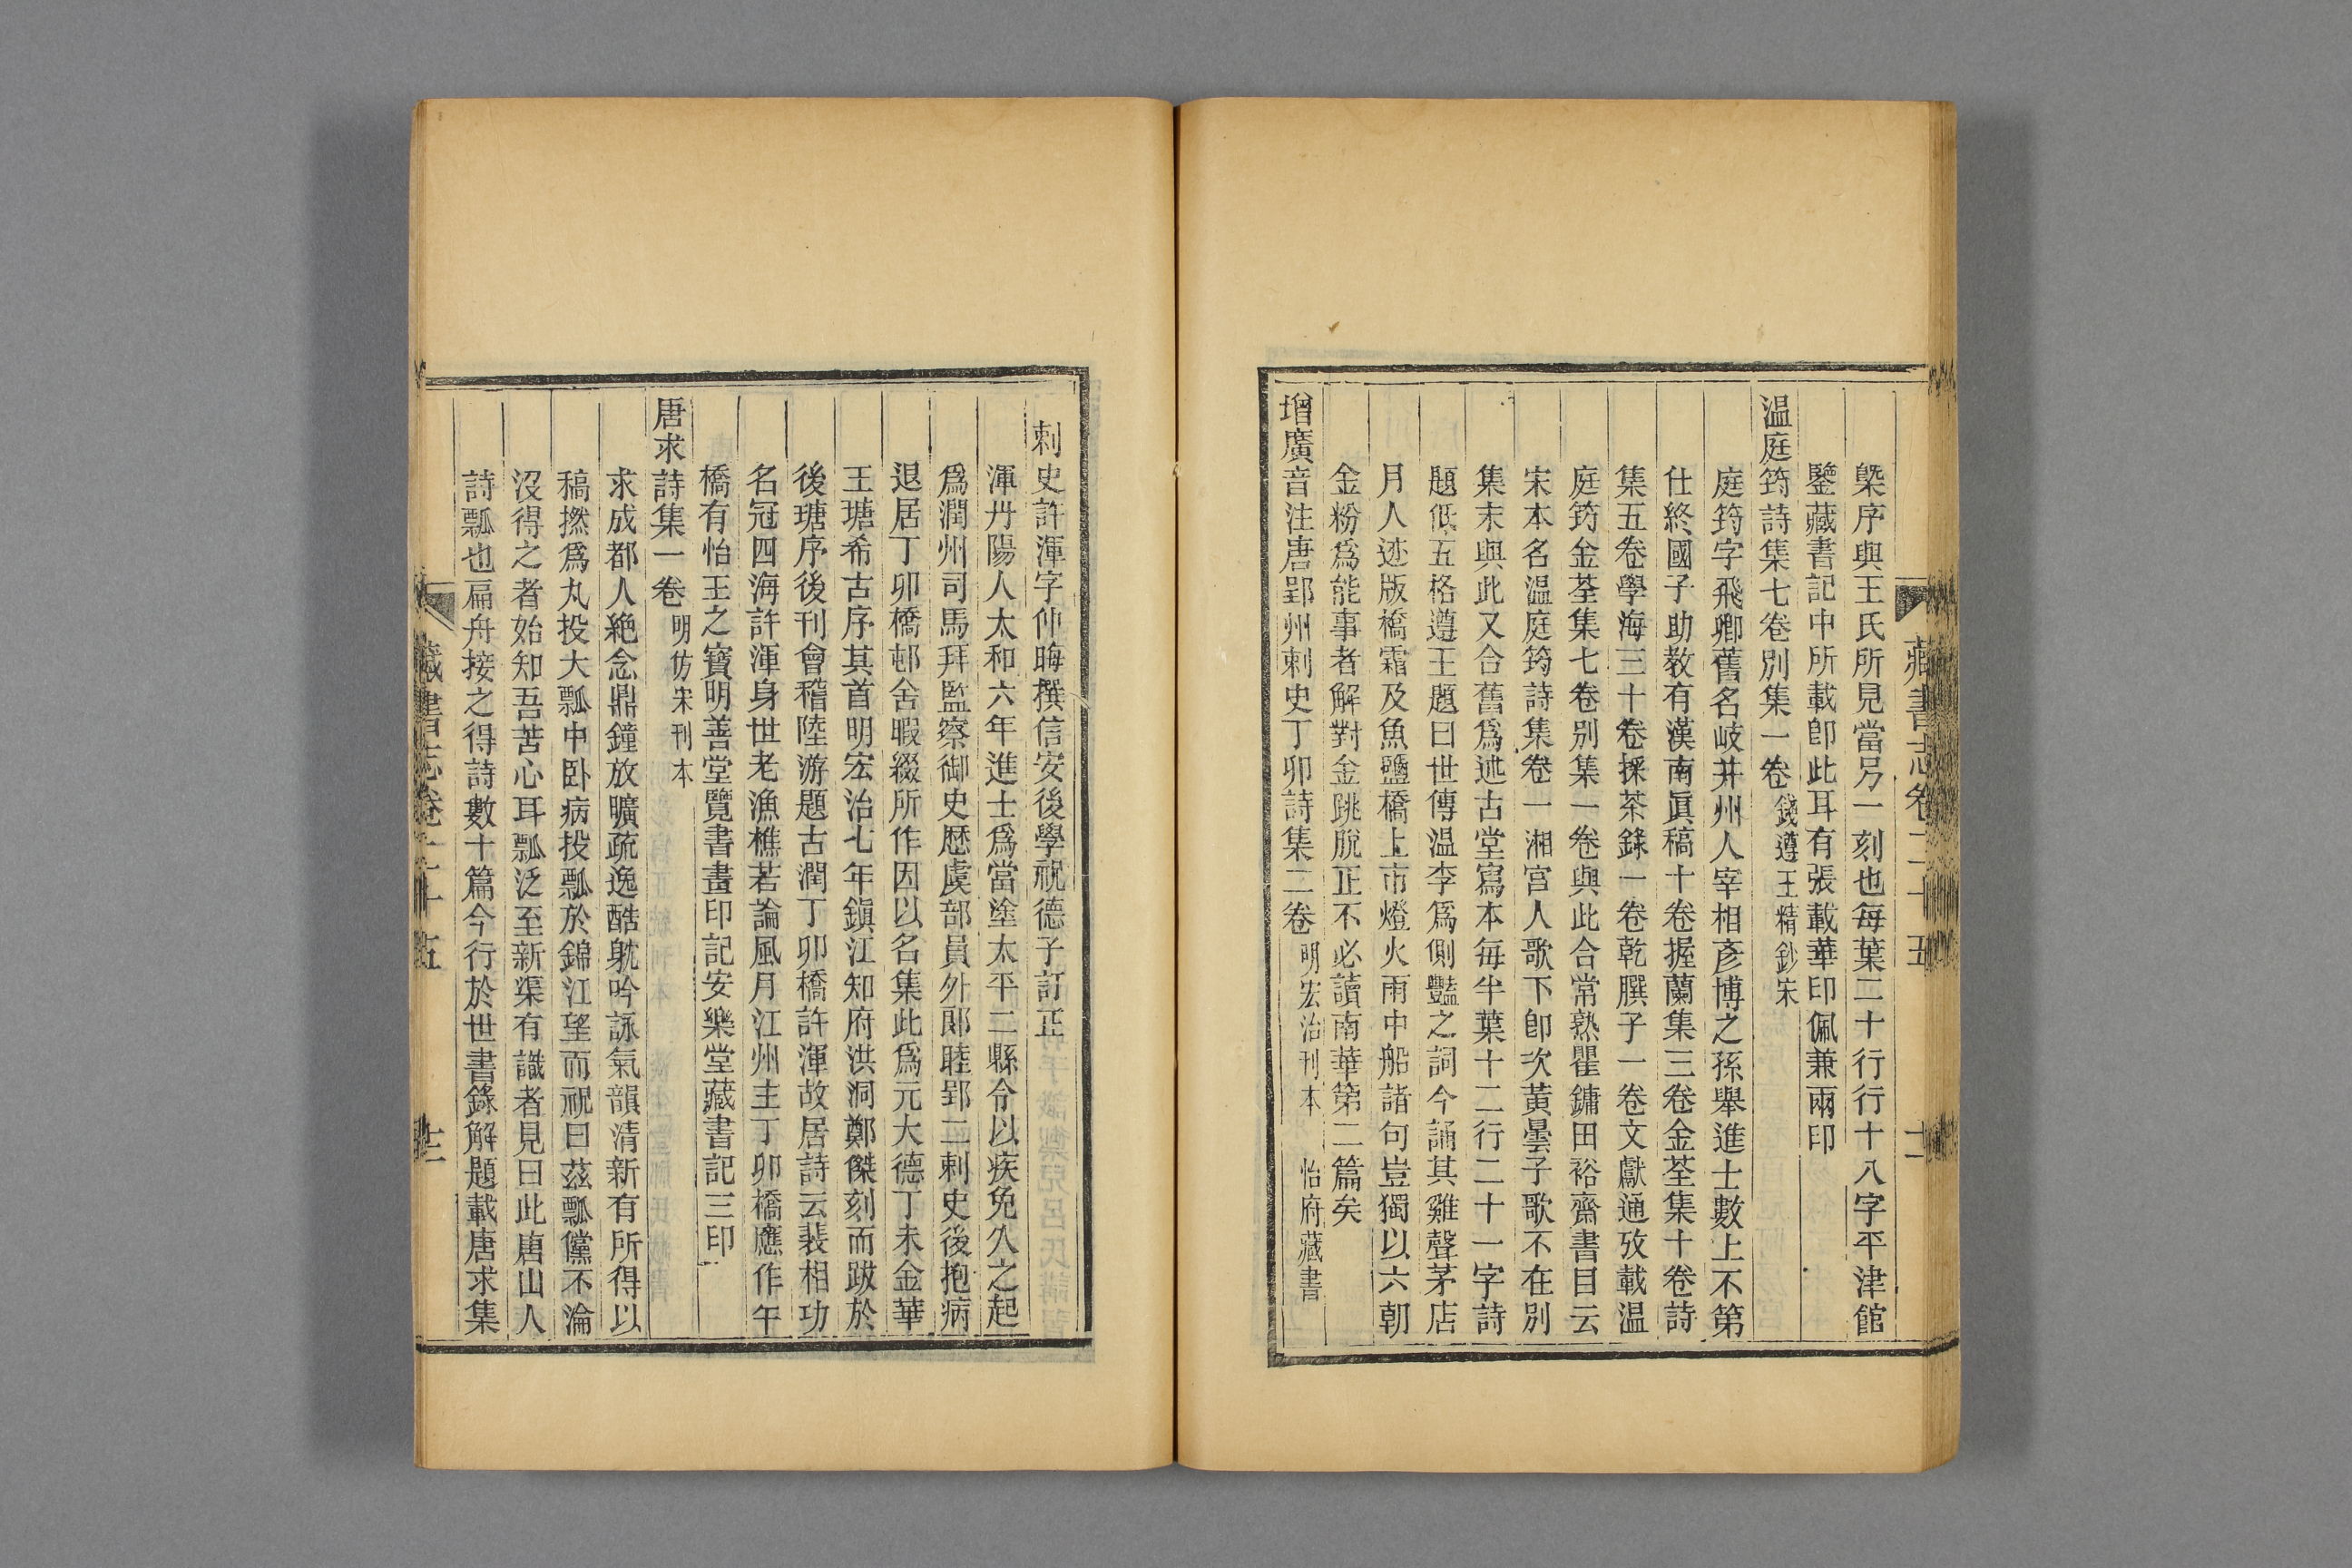 槩序與王氏所見當另一刻也每葉二十行行十八字平津館
鑒藏書記中所載卽此耳有張載華印佩兼兩印
溫庭筠詩集七卷別集一卷 錢遵王精鈔宋
庭筠字飛卿舊名岐幷州人宰相彥博之孫舉進士數上不第
仕終國子助敎有漢南眞稿十卷握蘭集三卷金荃集十卷詩
集五卷學海三十卷採茶錄一卷乾𦠆子一卷文獻通攷載温
庭筠金荃集七卷別集一卷與此合常熟瞿鏞田裕齋書目云
宋本名溫庭筠詩集卷一湘宫人歌下卽次黃曇子歌不在別
集末與此又合舊爲述古堂寫本每半葉十二行二十一字詩
題低五格遵王題曰世傳温李爲側豔之詞今誦其雞聲茅店
月人迹版橋霜及魚鹽橋上市燈火雨中船諸句豈獨以六朝
金粉爲能事者解對金跳脫正不必讀南華第二篇矣
增廣音注唐郢州刺史丁卯詩集二卷 明宏治刊本 怡府藏書
藏書志卷二十五
十二
刺史許渾字仲晦撰信安後學祝德子訂正
渾丹陽人太和六年進士爲當塗太平二縣令以疾免久之起
爲潤州司馬拜監察御史歷虞部員外郞睦郢二刺史後抱病
退居丁卯橋邨舍暇綴所作因以名集此爲元大德丁未金華
王瑭希古序其首明宏治七年鎭江知府洪洞鄭傑刻而跋於
後瑭序後刊會稽陸游題古潤丁卯橋許渾故居詩云裴相功
名冠四海許渾身世老漁樵若論風月江州主丁卯橋應作午
橋有怡王之寶明善堂覽書畫印記安樂堂藏書記三印
唐求詩集一卷 明仿宋刊本
求成都人絶念鼎鐘放曠疏逸酷躭吟詠氣韻清新有所得以
稿撚爲丸投大瓢中卧病投瓢於錦江望而祝曰茲瓢儻不淪
沒得之者始知吾苦心耳瓢泛至新渠有識者見曰此唐山人
詩瓢也扁舟接之得詩數十篇今行於世書錄解題載唐求集
藏書志卷二十五
十二